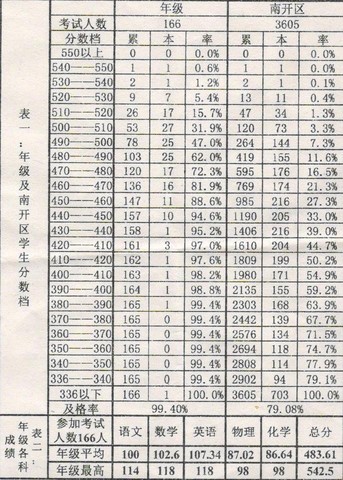 年级 南开区
考试人数 166 3605
分数档 累 本 率 累 本 率
550以上 0 0 0.0% 0 0 0.0%
540——550 1 1 0.6% 1 1 0.0%
530——540 2 1 1.2% 2 1 0.1%
520——530 9 7 5.4% 13 11 0.4%
510——520 26 17 15.7% 47 34 1.3%
500——510 53 27 31.9% 120 73 3.3%
490——500 78 25 47.0% 264 144 7.3%
480——490 103 25 62.0% 419 155 11.6%
470——480 120 17 72.3% 595 176 16.5%
460——470 136 16 81.9% 769 174 21.3%
450——460 147 11 88.6% 985 216 27.3%
440——450 157 10 94.6% 1190 205 33.0%
430——440 158 1 95.2% 1406 216 39.0%
420——410 161 3 97.0% 1610 204 44.7%
410——420 162 1 97.6% 1809 199 50.2%
400——410 163 1 98.2% 1980 171 54.9%
390——400 164 1 98.8% 2135 155 59.2%
380——390 165 1 99.4% 2303 168 63.9%
370——380 165 0 99.4% 2442 139 67.7%
360——370 165 0 99.4% 2576 134 71.5%
350——360 165 0 99.4% 2694 118 74.7%
340——350 165 0 99.4% 2808 114 77.9%
336——340 165 0 99.4% 2902 94 79.1%
336以下 166 1 100.0% 3605 703 100.0%
及格率 99.40% 79.08%
表一：年级及南开区学生分数档
参加考试人数166人 语文 数学 英语 物理 化学 总分
年级平均 100 102.6 107.34 87.02 86.64 483.61
年级最高 114 118 118 98 98 542.5
表二：年级各科成绩